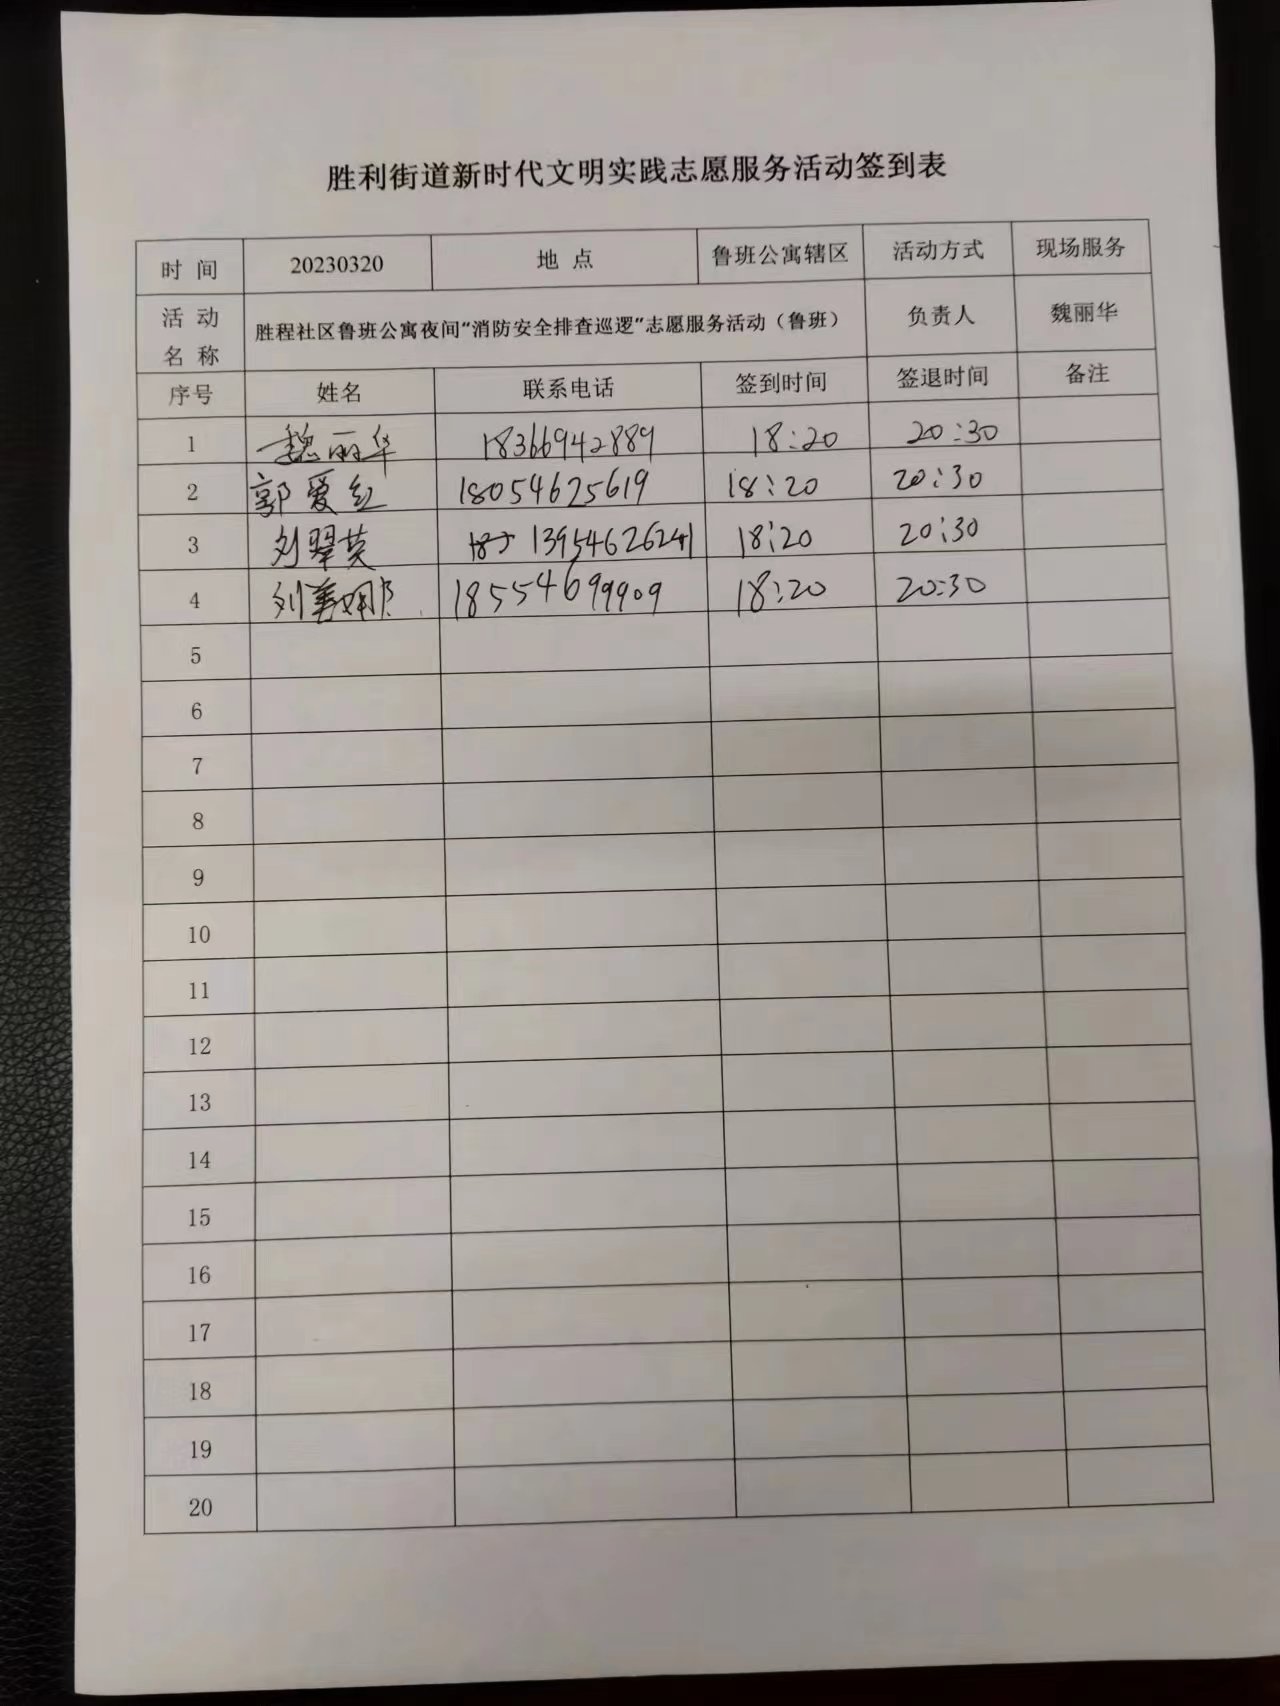 胜利街道新时代文明实践志愿服务活动签到表
时 间 20230320 地 点 鲁班公寓辖区 活动方式 现场服务
活 动 名 称 胜程社区鲁班公寓夜间“消防安全排查巡逻”志愿服务活动（鲁班） 负责人 魏丽华
序号 姓名 联系电话 签到时间 签退时间 备注
1 魏丽华 18366942889 18:20 20:30
2 郭爱红 18054625619 18:20 20:30
3 刘翠英 13954626241 18:20 20:30
4 刘美娜 18554699909 18:20 20:30
5
6
7
8
9
10
11
12
13
14
15
16
17
18
19
20